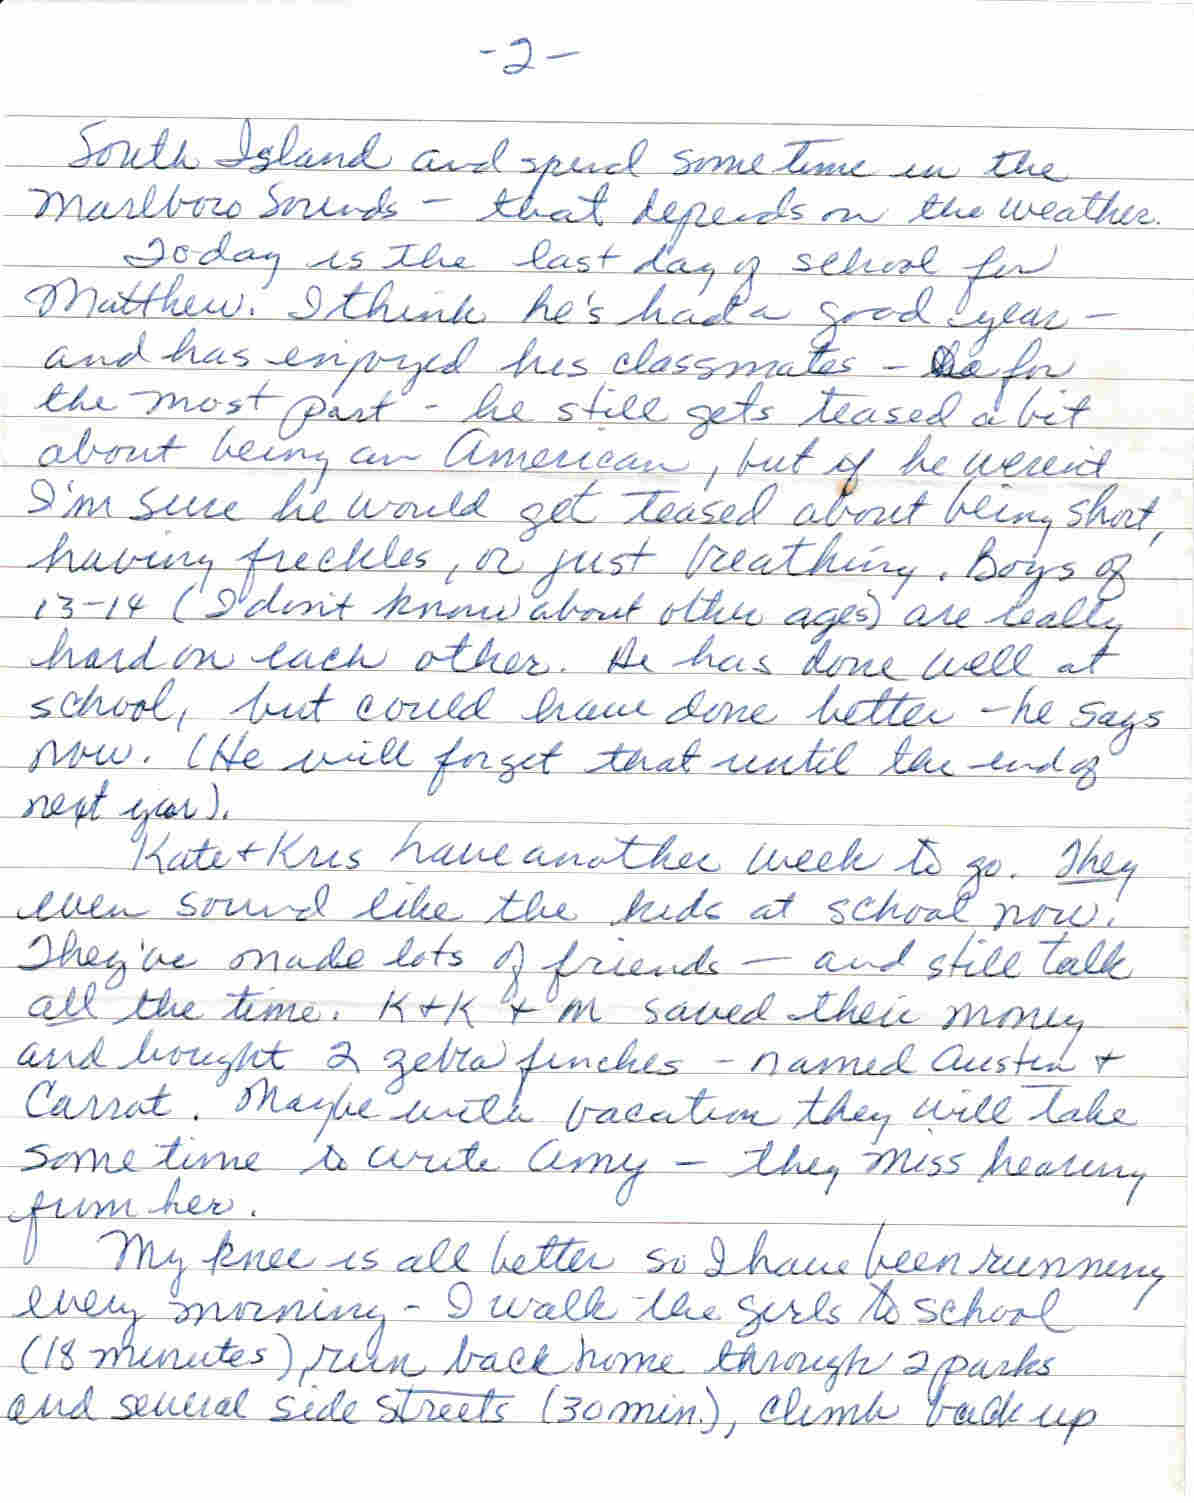 -2-
South Island and spend some time in the
Marlboro Sounds - that depends on the weather.
Today is the last day of school for
Matthew. I think he's had a good year -
and has enjoyed his classmates - for
the most part - he still gets teased a bit
about being an American, but if he weren't
I'm sure he would get teased about being short,
having freckles, or just breathing. Boys of
13-14 (I don't know about other ages) are really
hard on each other. He has done well at
school, but could have done better - he says
now. (He will forget that until the end of
next year).
Kate + Kris have another week to go. They
even sound like the kids at school now.
They've made lots of friends - and still talk
all the time. K + K + M saved their money
and bought 2 zebra finches - named Austin +
Carrot. Maybe with vacation they will take
some time to write Amy - they miss hearing
from her.
My knee is all better so I have been running
every morning - I walk the girls to school
(18 minutes), run back home through 2 parks
and several side streets (30 min.), climb back up